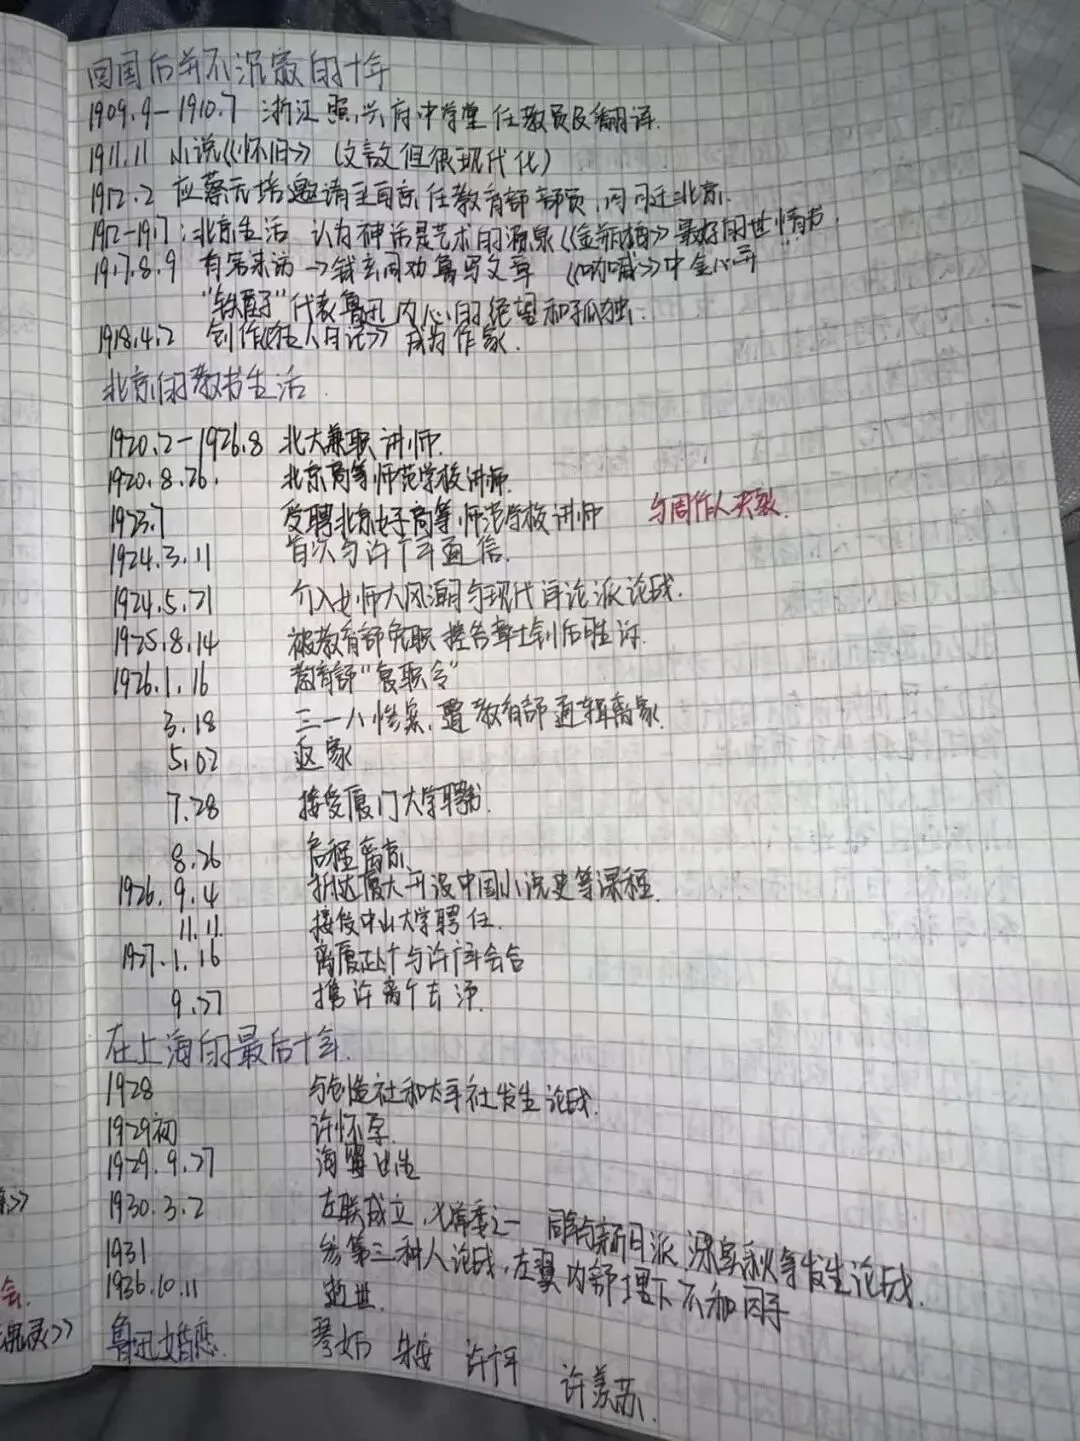 回国后并不沉寂的十年
1909.9-1910.7 浙江 绍兴府中学堂 任教员及翻译.
1911.11 小说《怀旧》(文言文但很现代化)
1912.2 应蔡元培邀请至南京 任教育部部员,同司迁北京.
1912-1917:北京生活 认为神话是艺术的源泉《金瓶梅》最好的世情书.
1917.8.9 有客来访→钱玄同劝鲁写文章 《呐喊》中金心异
"铁屋子"代表鲁迅内心的绝望和孤独.
1918.4.2 创作《狂人日记》成为作家.
北京的教书生活.
1920.2-1926.8 北大兼职讲师.
1920.8.26. 北京高等师范学校讲师.
1923.7 受聘北京女子高等师范学校讲师 与周作人失和.
1924.3.11 首次与许广平通信.
1924.5.21 介入女师大风潮与现代评论派论战.
1925.8.14 被教育部免职 控告章士钊后胜诉.
1926.1.16 教育部"复职令"
3.18 三一八惨案,遭教育部通辑离家.
5.02 返家
7.28 接受厦门大学聘书.
8.26 启程离京.
1926.9.4 抵达厦大开设中国小说史等课程.
11.11. 接受中山大学聘任.
1927.1.16 离厦赴广与许广平会合
9.27 携许离广去沪.
在上海的最后十年.
1928 与创造社和太平社发生论战.
1929初 许怀孕.
1929.9.27 海婴出生
1930.3.2 左联成立,七常委之一 同年与新月派 梁实秋等发生论战.
1931 参第三种人论战,左翼内部埋下不和因子
1936.10.11 逝世.
鲁迅婚恋. 琴姑 朱安 许广平 许羡苏.
会.